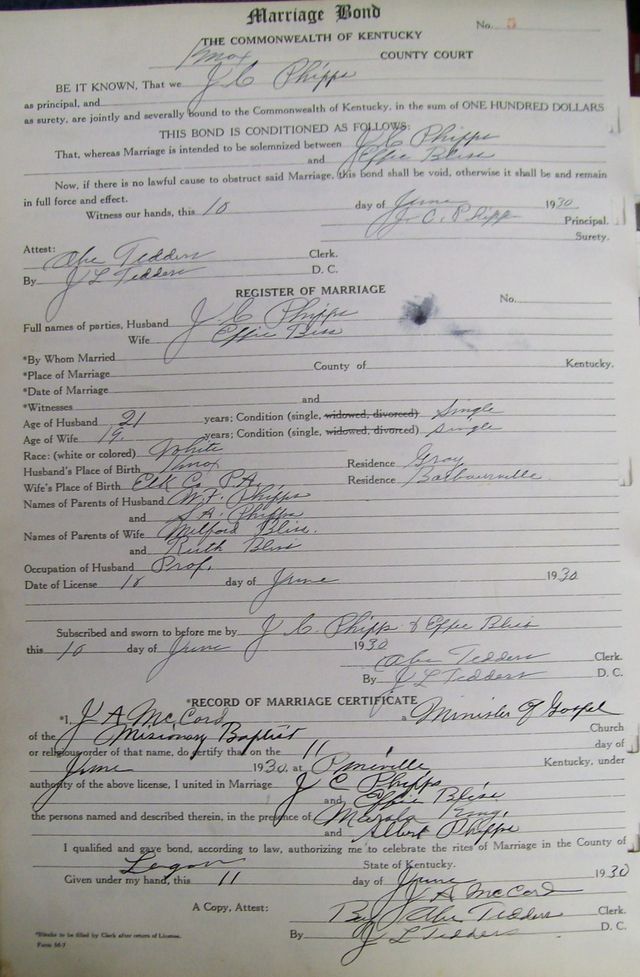 Marriage Bond
No. 5
THE COMMONWEALTH OF KENTUCKY
Knox COUNTY COURT
BE IT KNOWN, That we J C Phipps
as principal, and
as surety, are jointly and severally bound to the Commonwealth of Kentucky, in the sum of ONE HUNDRED DOLLARS
THIS BOND IS CONDITIONED AS FOLLOWS:
That, whereas Marriage is intended to be solemnized between J. C Phipps
and Effie Bliss
Now, if there is no lawful cause to obstruct said Marriage, this bond shall be void, otherwise it shall be and remain
in full force and effect.
Witness our hands, this 10 day of June 1930
J. C. Phipp Principal.
Surety.
Attest:
Abe Tedders Clerk.
By J L Tedders D. C.
REGISTER OF MARRIAGE
No.
Full names of parties, Husband J. C Phipps
Wife Effie Bliss
*By Whom Married
*Place of Marriage County of Kentucky.
*Date of Marriage
*Witnesses and
Age of Husband 21 years; Condition (single, widowed, divorced) Single
Age of Wife 19. years; Condition (single, widowed, divorced) Single
Race: (white or colored) White
Husband's Place of Birth Knox Residence Gray
Wife's Place of Birth Elk Co, P.A. Residence Barbourville
Names of Parents of Husband W. F. Phipps
and S. A. Phipps
Names of Parents of Wife Milford Bliss.
and Ruth Bliss
Occupation of Husband Prof.
Date of License 10 day of June 1930
Subscribed and sworn to before me by J. C. Phipps & Effie Bliss
this 10 day of June 1930
Abe Tedders Clerk.
By J L Tedders D. C.
*RECORD OF MARRIAGE CERTIFICATE
*I, J A McCord a Minister of Gospel
of the Missionary Baptist Church
or religious order of that name, do certify that on the 11 day of
June 1930, at Pineville Kentucky, under
authority of the above license, I united in Marriage J C Phipps
and Effie Bliss
the persons named and described therein, in the presence of King,
and Albert Phipps
I qualified and gave bond, according to law, authorizing me to celebrate the rites of Marriage in the County of
Logan State of Kentucky.
Given under my hand, this 11 day of June 1930
J A McCord
A Copy, Attest: By Abe Tedders Clerk.
By J L Tedders D. C.
*Blanks to be filled by Clerk after return of License.